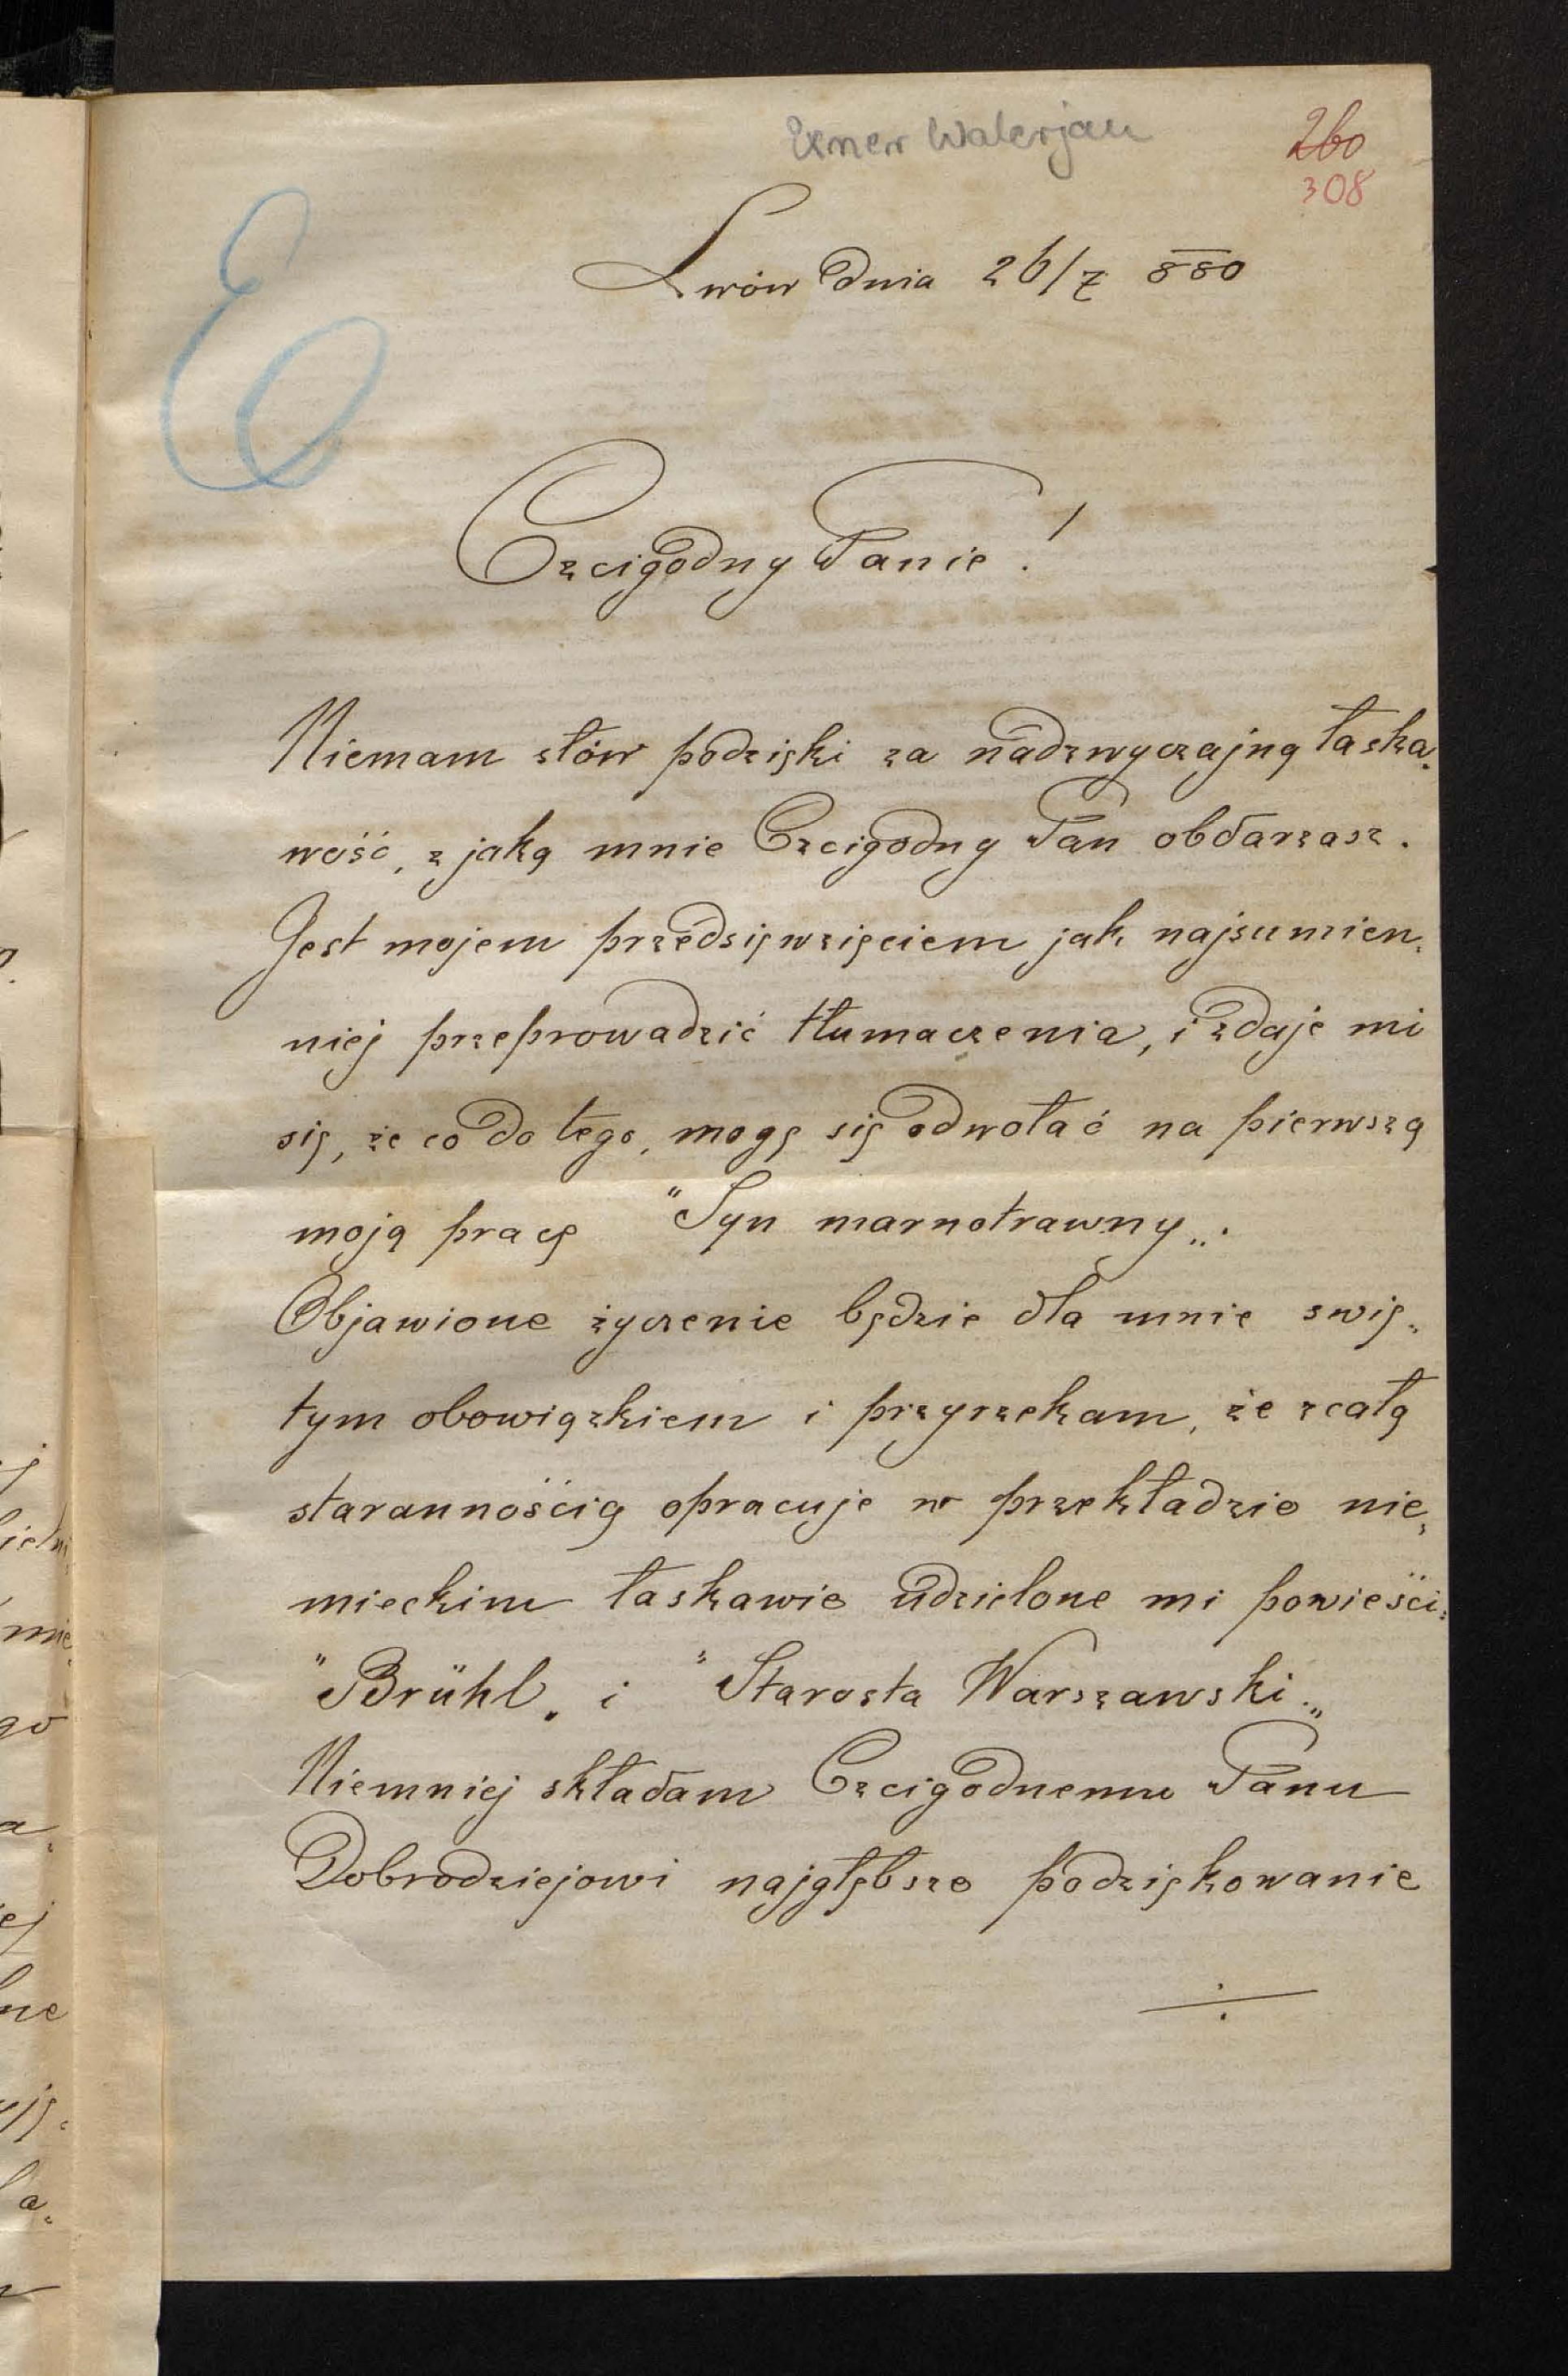 Exner Walerjan
260
308
E
Lwów dnia 26/7 880
Czcigodny Panie!
Niemam słów podzięki za nadzwyczajną łaska„
wość, z jaką mnie Czcigodny Pan obdarzasz.
Jest mojem przedsięwzięciem jak najsumien„
niej przeprowadzić tłumaczenia, i zdaje mi
się, że co do tego, mogę się odwołać na pierwszą
moją pracę "Syn marnotrawny„.
Objawione życzenie będzie dla mnie swię„
tym obowiązkiem i przyrzekam, że z całą
starannością opracuje w przekładzie nie„
mieckim łaskawie udzielone mi powieści:
"Brühl„ i "Starosta Warszawski.„
Niemniej składam Czcigodnemu Panu
Dobrodziejowi najgłębsze podziękowanie
÷